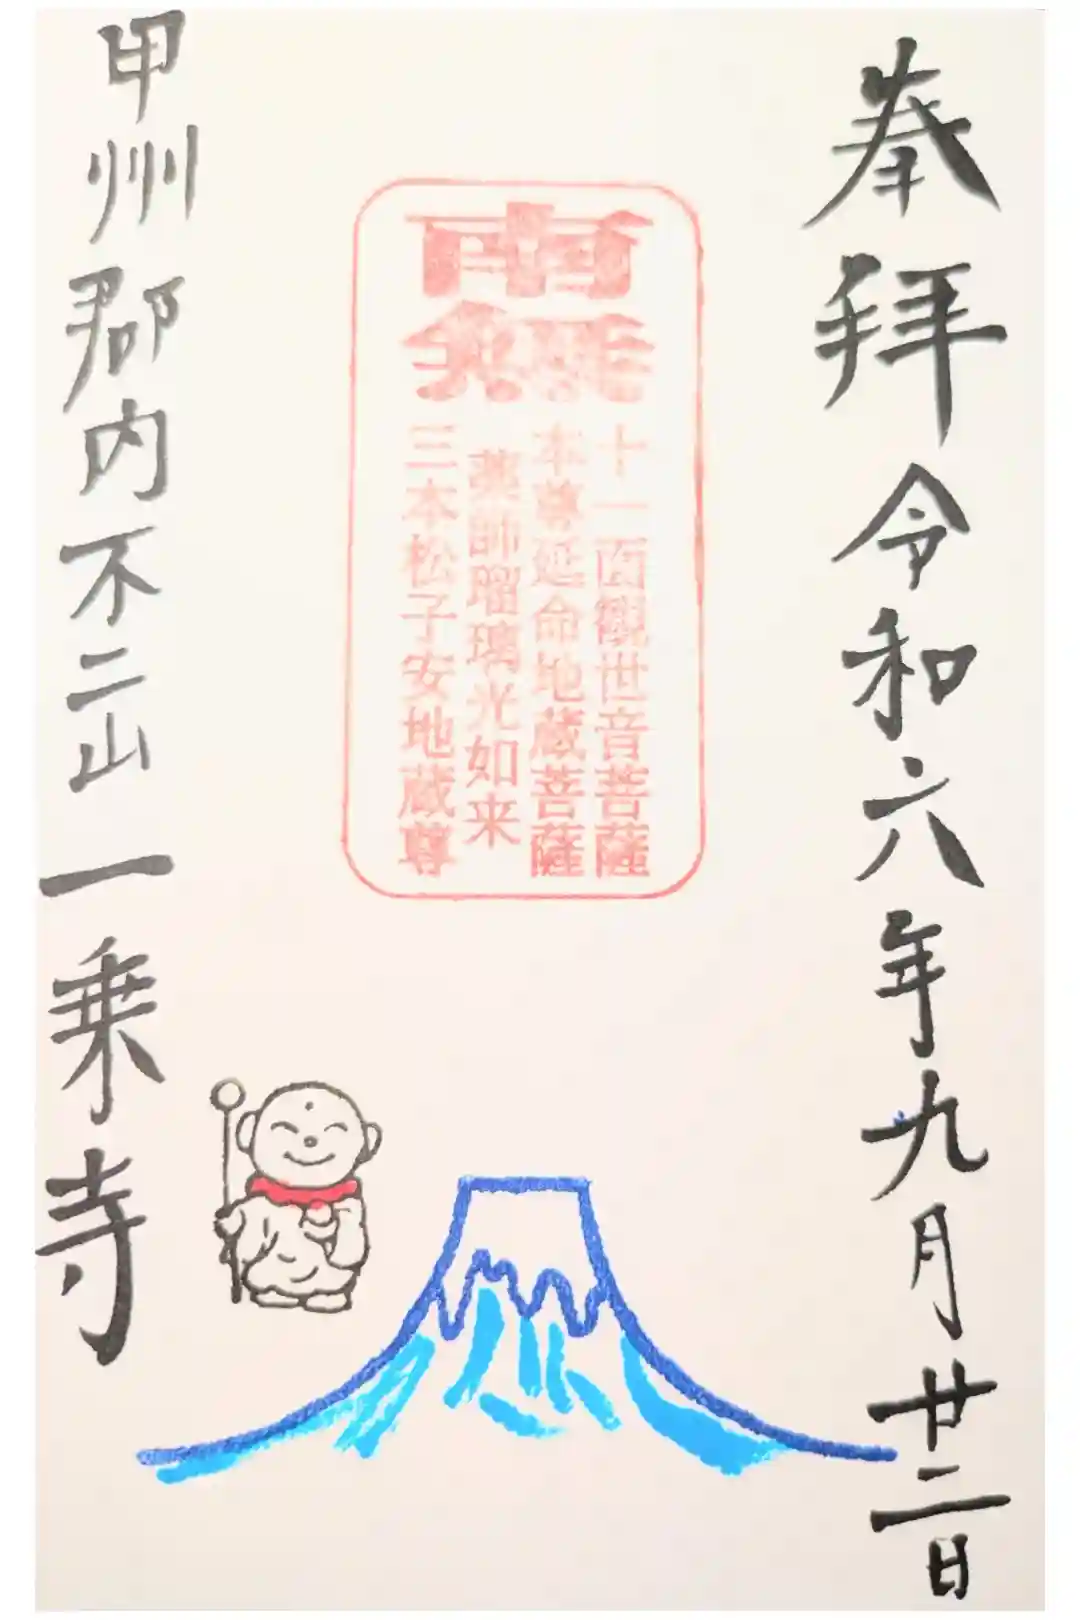 奉拝 令和六年九月廿二日
南無
十一面観世音菩薩
本尊延命地蔵菩薩
薬師瑠璃光如来
三本松子安地蔵尊
甲州郡内不二山 一乗寺